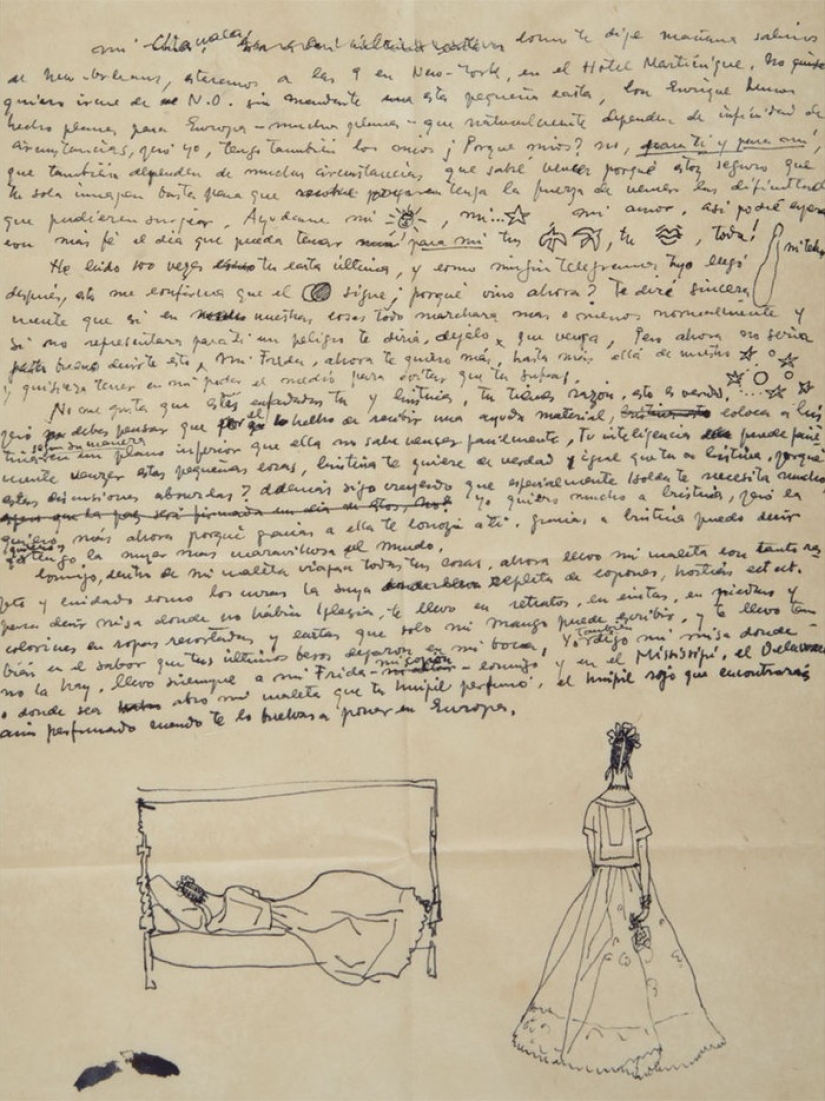 mi Chiquacal, como te dije mañana salimos
de New-Orleans, estaremos a las 9 en New-York, en el Hotel Martinique. No quise
quiero irme de N.O. sin mandarte una esta pequeña carta, Con Enrique hemos
hecho planes para Europa - muchos planes - que naturalmente dependen de infinidad de
circunstancias, pero yo, tengo también los mios ¿ Porque mios? no, para ti y para mi,
que también dependen de muchas circunstancias que sabré vencer porqué estoy seguro que
tu sola imagen basta para que tenga la fuerza de vencer las dificultades
que pudieran surgir, Ayudame mi , mi... , mi amor, así podré
con más fé el día que pueda tener para mi tus , tu , toda!
mi
He leído 100 veces tu carta última, y como ningún telegrama tuyo llegó
después, esto me confirma que el sigue, ¿ porqué vino ahora? Te diré sincera
mente que si en nuestras cosas todo marchara mas o menos normalmente y
si no representara para ti un peligro te diria, déjelo, que venga, Pero ahora no seria
bueno decirte esto, Mi Frida, ahora te quiero más, hasta más allá de
y quisiera tener en mi poder el medio para evitar que tu sufras,
No me gusta que estés enfadadas tu y Cristina, tu tienes razón, esto es verdad,
pero no debes pensar que el hecho de recibir una ayuda material, coloca a Cris
tina en un plano inferior que ella no sabe vencer facilmente, Tu inteligencia puede facil
según su manera
mente vencer estas pequeñas cosas, Cristina te quiere de verdad y igual que tu a Cristina, porqué
estas discusiones absurdas? Además sigo creyendo que especialmente Isolda te necesita mucho
Yo quiero mucho a Cristina, pero la
quiero más ahora porqué gracias a ella te conozco a ti. gracias a Cristina puedo decir
tengo la mujer mas maravillosa del mundo.
Conmigo, dentro de mi valita viajan todas tus cosas, ahora llevo mi maleta con tanto res
peto y cuidado como los curas la suya repleta de copones, hostias ect ect.
para decir misa donde no había Iglesia, te llevo en retratos, en cintas, en piedras y
colorines en ropas recortadas y cartas que solo mi mango puede escribir, y te llevo tam
bién en el sabor que tus últimos besos dejaron en mi boca, Yo también digo mi misa donde
no la hay, llevo siempre a mi Frida - mi copón - conmigo y en el Mississipi, el Delaware
o donde sea abro mi maleta que tu huipil perfumó. el huipil rojo que encontrarás
aún perfumado cuando te lo vuelvas a poner en Europa.